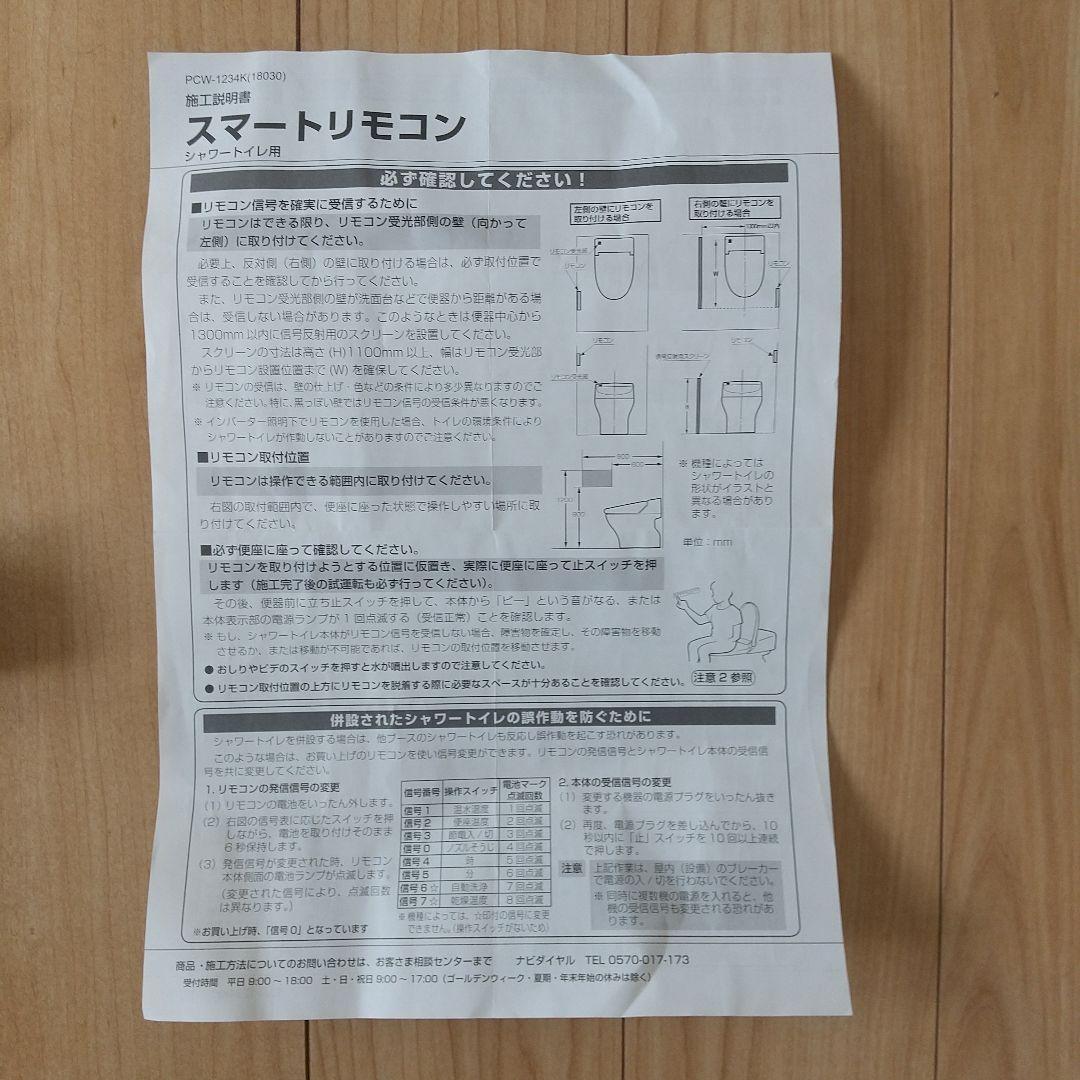 PCW-1234K(18030)
施工説明書
スマートリモコン
シャワートイレ用
必ず確認してください！
■リモコン信号を確実に受信するために
リモコンはできる限り、リモコン受光部側の壁（向かって
左側）に取り付けてください。
必要上、反対側（右側）の壁に取り付ける場合は、必ず取付位置で
受信することを確認してから行ってください。
また、リモコン受光部側の壁が洗面台などで便器から距離がある場
合は、受信しない場合があります。このようなときは便器中心から
1300mm以内に信号反射用のスクリーンを設置してください。
スクリーンの寸法は高さ(H)1100mm以上、幅はリモコン受光部
からリモコン設置位置まで(W)を確保してください。
※リモコンの受信は、壁の仕上げ・色などの条件により多少異なりますのでご
注意ください。特に、黒っぽい壁ではリモコン信号の受信条件が悪くなります。
※インバーター照明下でリモコンを使用した場合、トイレの環境条件により
シャワートイレが作動しないことがありますのでご注意ください。
左側の壁にリモコンを
取り付ける場合
右側の壁にリモコンを
取り付ける場合
1300mm以内
リモコン受光部
リモコン
W
リモコン
リモコン
リモコン
信号反射用スクリーン
リモコン受光部
H
■リモコン取付位置
リモコンは操作できる範囲内に取り付けてください。
右図の取付範囲内で、便座に座った状態で操作しやすい場所に取
り付けてください。
900
600
1200
※機種によっては
シャワートイレの
形状がイラストと
異なる場合があり
ます。
単位：mm
■必ず便座に座って確認してください。
リモコンを取り付けようとする位置に仮置き、実際に便座に座って止スイッチを押
します（施工完了後の試運転も必ず行ってください）。
その後、便器前に立ち止スイッチを押して、本体から「ピー」という音がなる、または
本体表示部の電源ランプが1回点滅する（受信正常）ことを確認します。
※もし、シャワートイレ本体がリモコン信号を受信しない場合、障害物を確定し、その障害物を移動
させるか、または移動が不可能であれば、リモコンの取付位置を移動させます。
●おしりやビデのスイッチを押すと水が噴出しますので注意してください。
●リモコン取付位置の上方にリモコンを脱着する際に必要なスペースが十分あることを確認してください。
注意2参照
併設されたシャワートイレの誤作動を防ぐために
シャワートイレを併設する場合は、他ブースのシャワートイレも反応し誤作動を起こす恐れがあります。
このような場合は、お買い上げのリモコンを使い信号変更ができます。リモコンの発信信号とシャワートイレ本体の受信信
号を共に変更してください。
1. リモコンの発信信号の変更
（1）リモコンの電池をいったん外します。
（2）右図の信号表に応じたスイッチを押
しながら、電池を取り付けそのまま
6秒保持します。
（3）発信信号が変更された時、リモコン
本体側面の電池ランプが点滅します。
（変更された信号により、点滅回数
は異なります。）
※お買い上げ時、「信号0」となっています
信号番号 操作スイッチ 電池マーク点滅回数
信号1 温水温度 1回点滅
信号2 便座温度 2回点滅
信号3 節電入/切 3回点滅
信号0 ノズルそうじ 4回点滅
信号4 時 5回点滅
信号5 分 6回点滅
信号6☆ 自動洗浄 7回点滅
信号7☆ 乾燥温度 8回点滅
※機種によっては、☆印付の信号に変更
できません。(操作スイッチがないため)
2. 本体の受信信号の変更
（1）変更する機器の電源プラグをいったん抜き
ます。
（2）再度、電源プラグを差し込んでから、10
秒以内に「止」スイッチを10回以上連続
で押します。
注意 上記作業は、屋内（設備）のブレーカー
で電源の入/切を行わないでください。
※同時に複数機の電源を入れると、他
機の受信信号も変更される恐れがあ
ります。
商品・施工方法についてのお問い合わせは、お客さま相談センターまで ナビダイヤル TEL 0570-017-173
受付時間 平日9:00～18:00 土・日・祝日9:00～17:00（ゴールデンウィーク・夏期・年末年始の休みは除く）